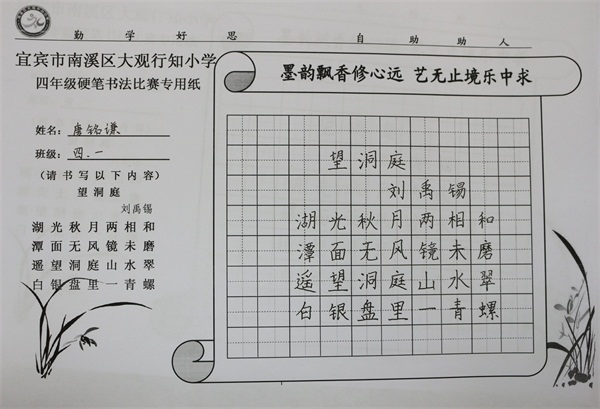 勤 学 好 思 自 助 助 人
宜宾市南溪区大观行知小学
四年级硬笔书法比赛专用纸
姓名：唐铭谦
班级：四.一
（请书写以下内容）
望洞庭
刘禹锡
湖光秋月两相和
潭面无风镜未磨
遥望洞庭山水翠
白银盘里一青螺
墨韵飘香修心远 艺无止境乐中求
望洞庭
刘禹锡
湖光秋月两相和
潭面无风镜未磨
遥望洞庭山水翠
白银盘里一青螺